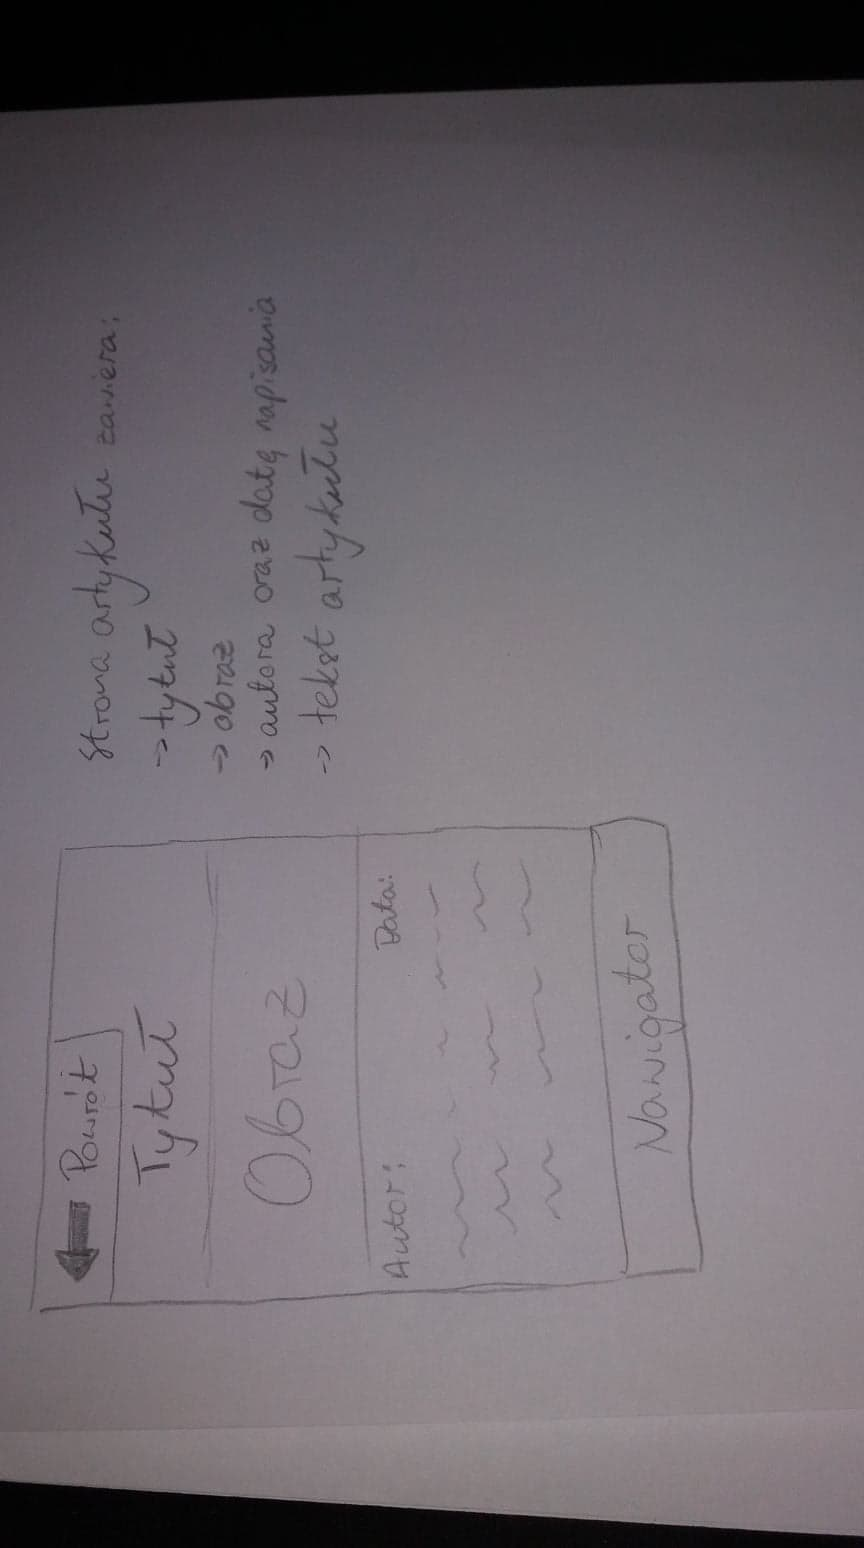 Powrót
Tytuł
Obraz
Autor: Data:
Nawigator
Strona artykułu zawiera:
-> tytuł
-> obraz
-> autora oraz datę napisania
-> tekst artykułu